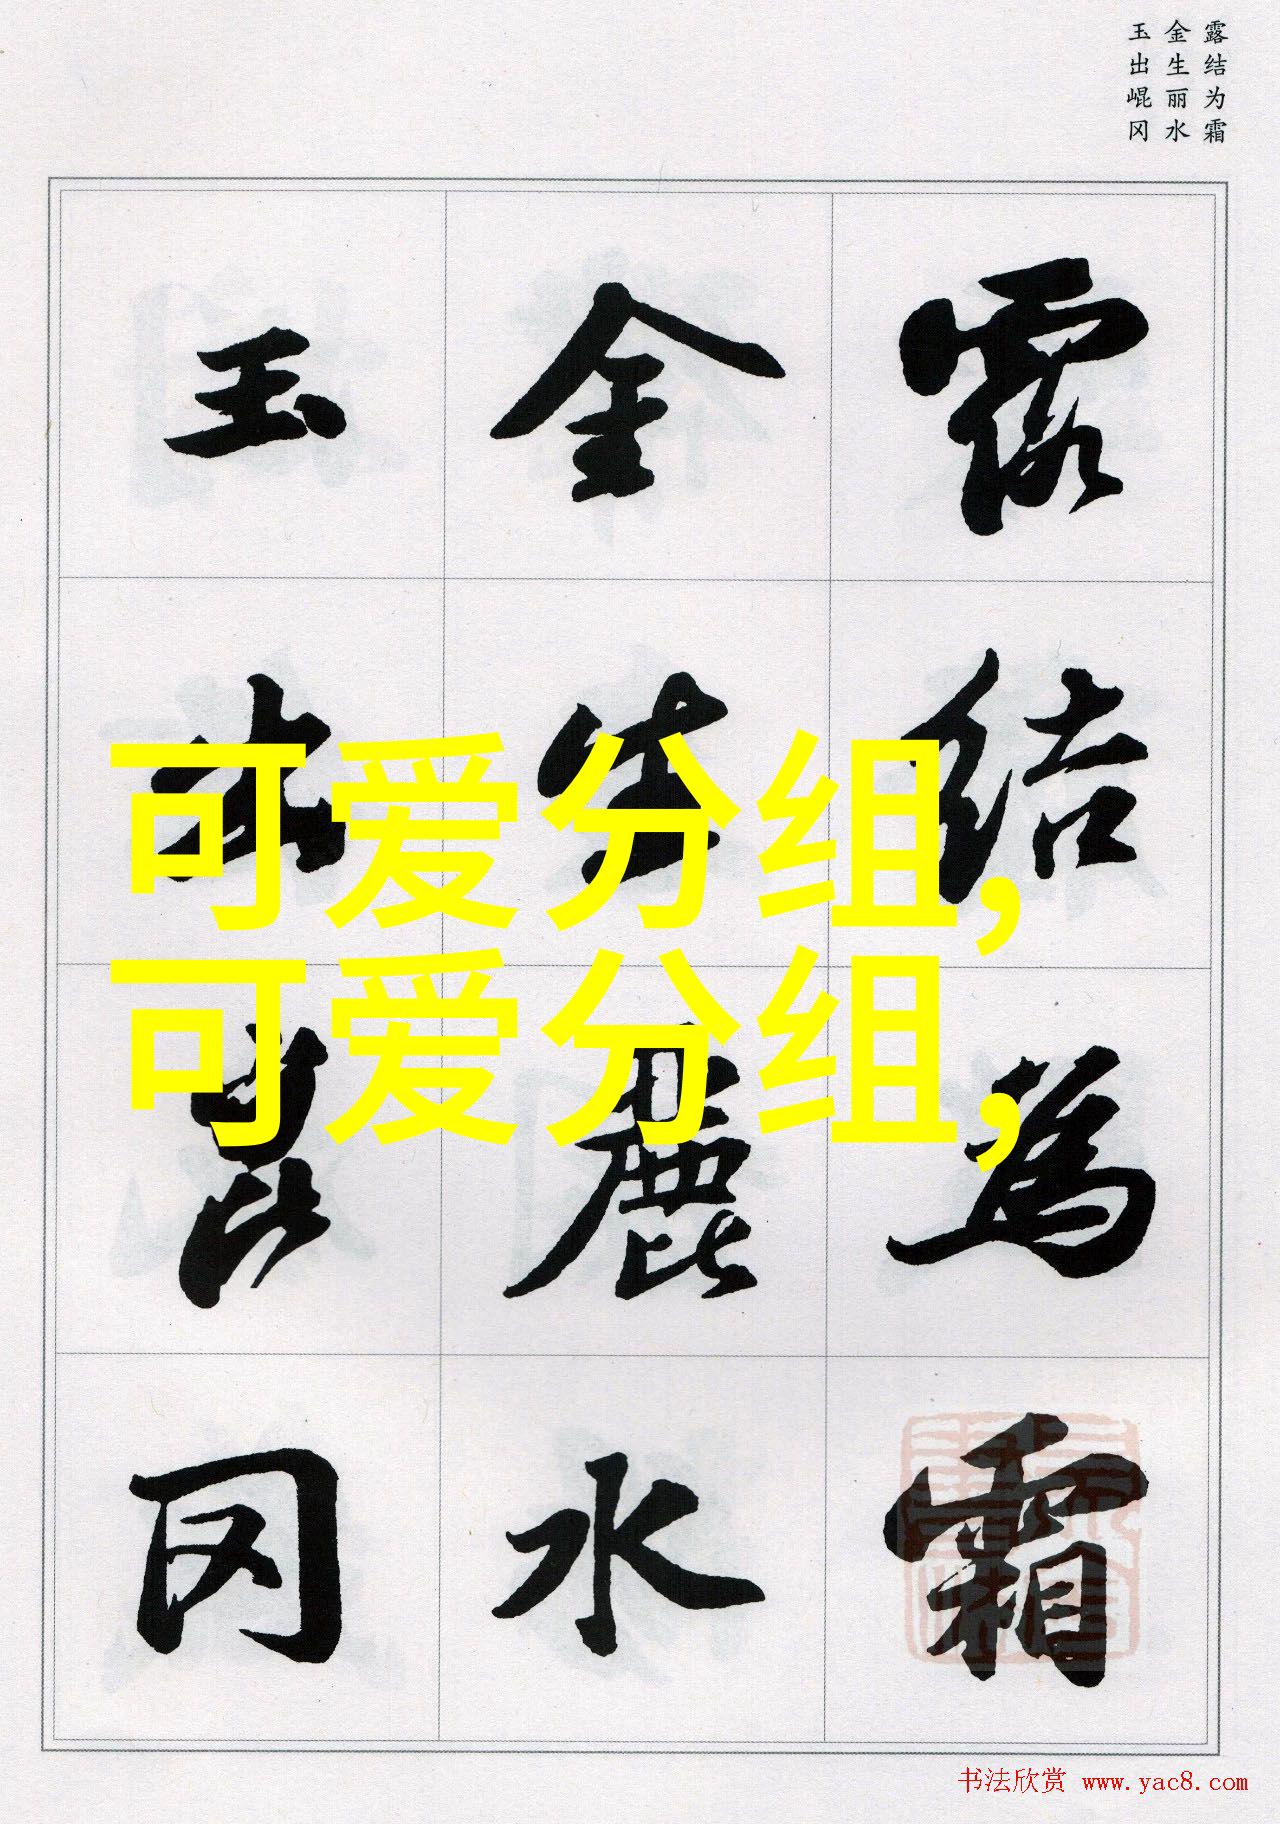 露结为霜
金生丽水
玉出崐冈
露結為霜
金生麗水
玉出崑冈
可爱分组,
可爱分组,
书法欣赏 www.yac8.com